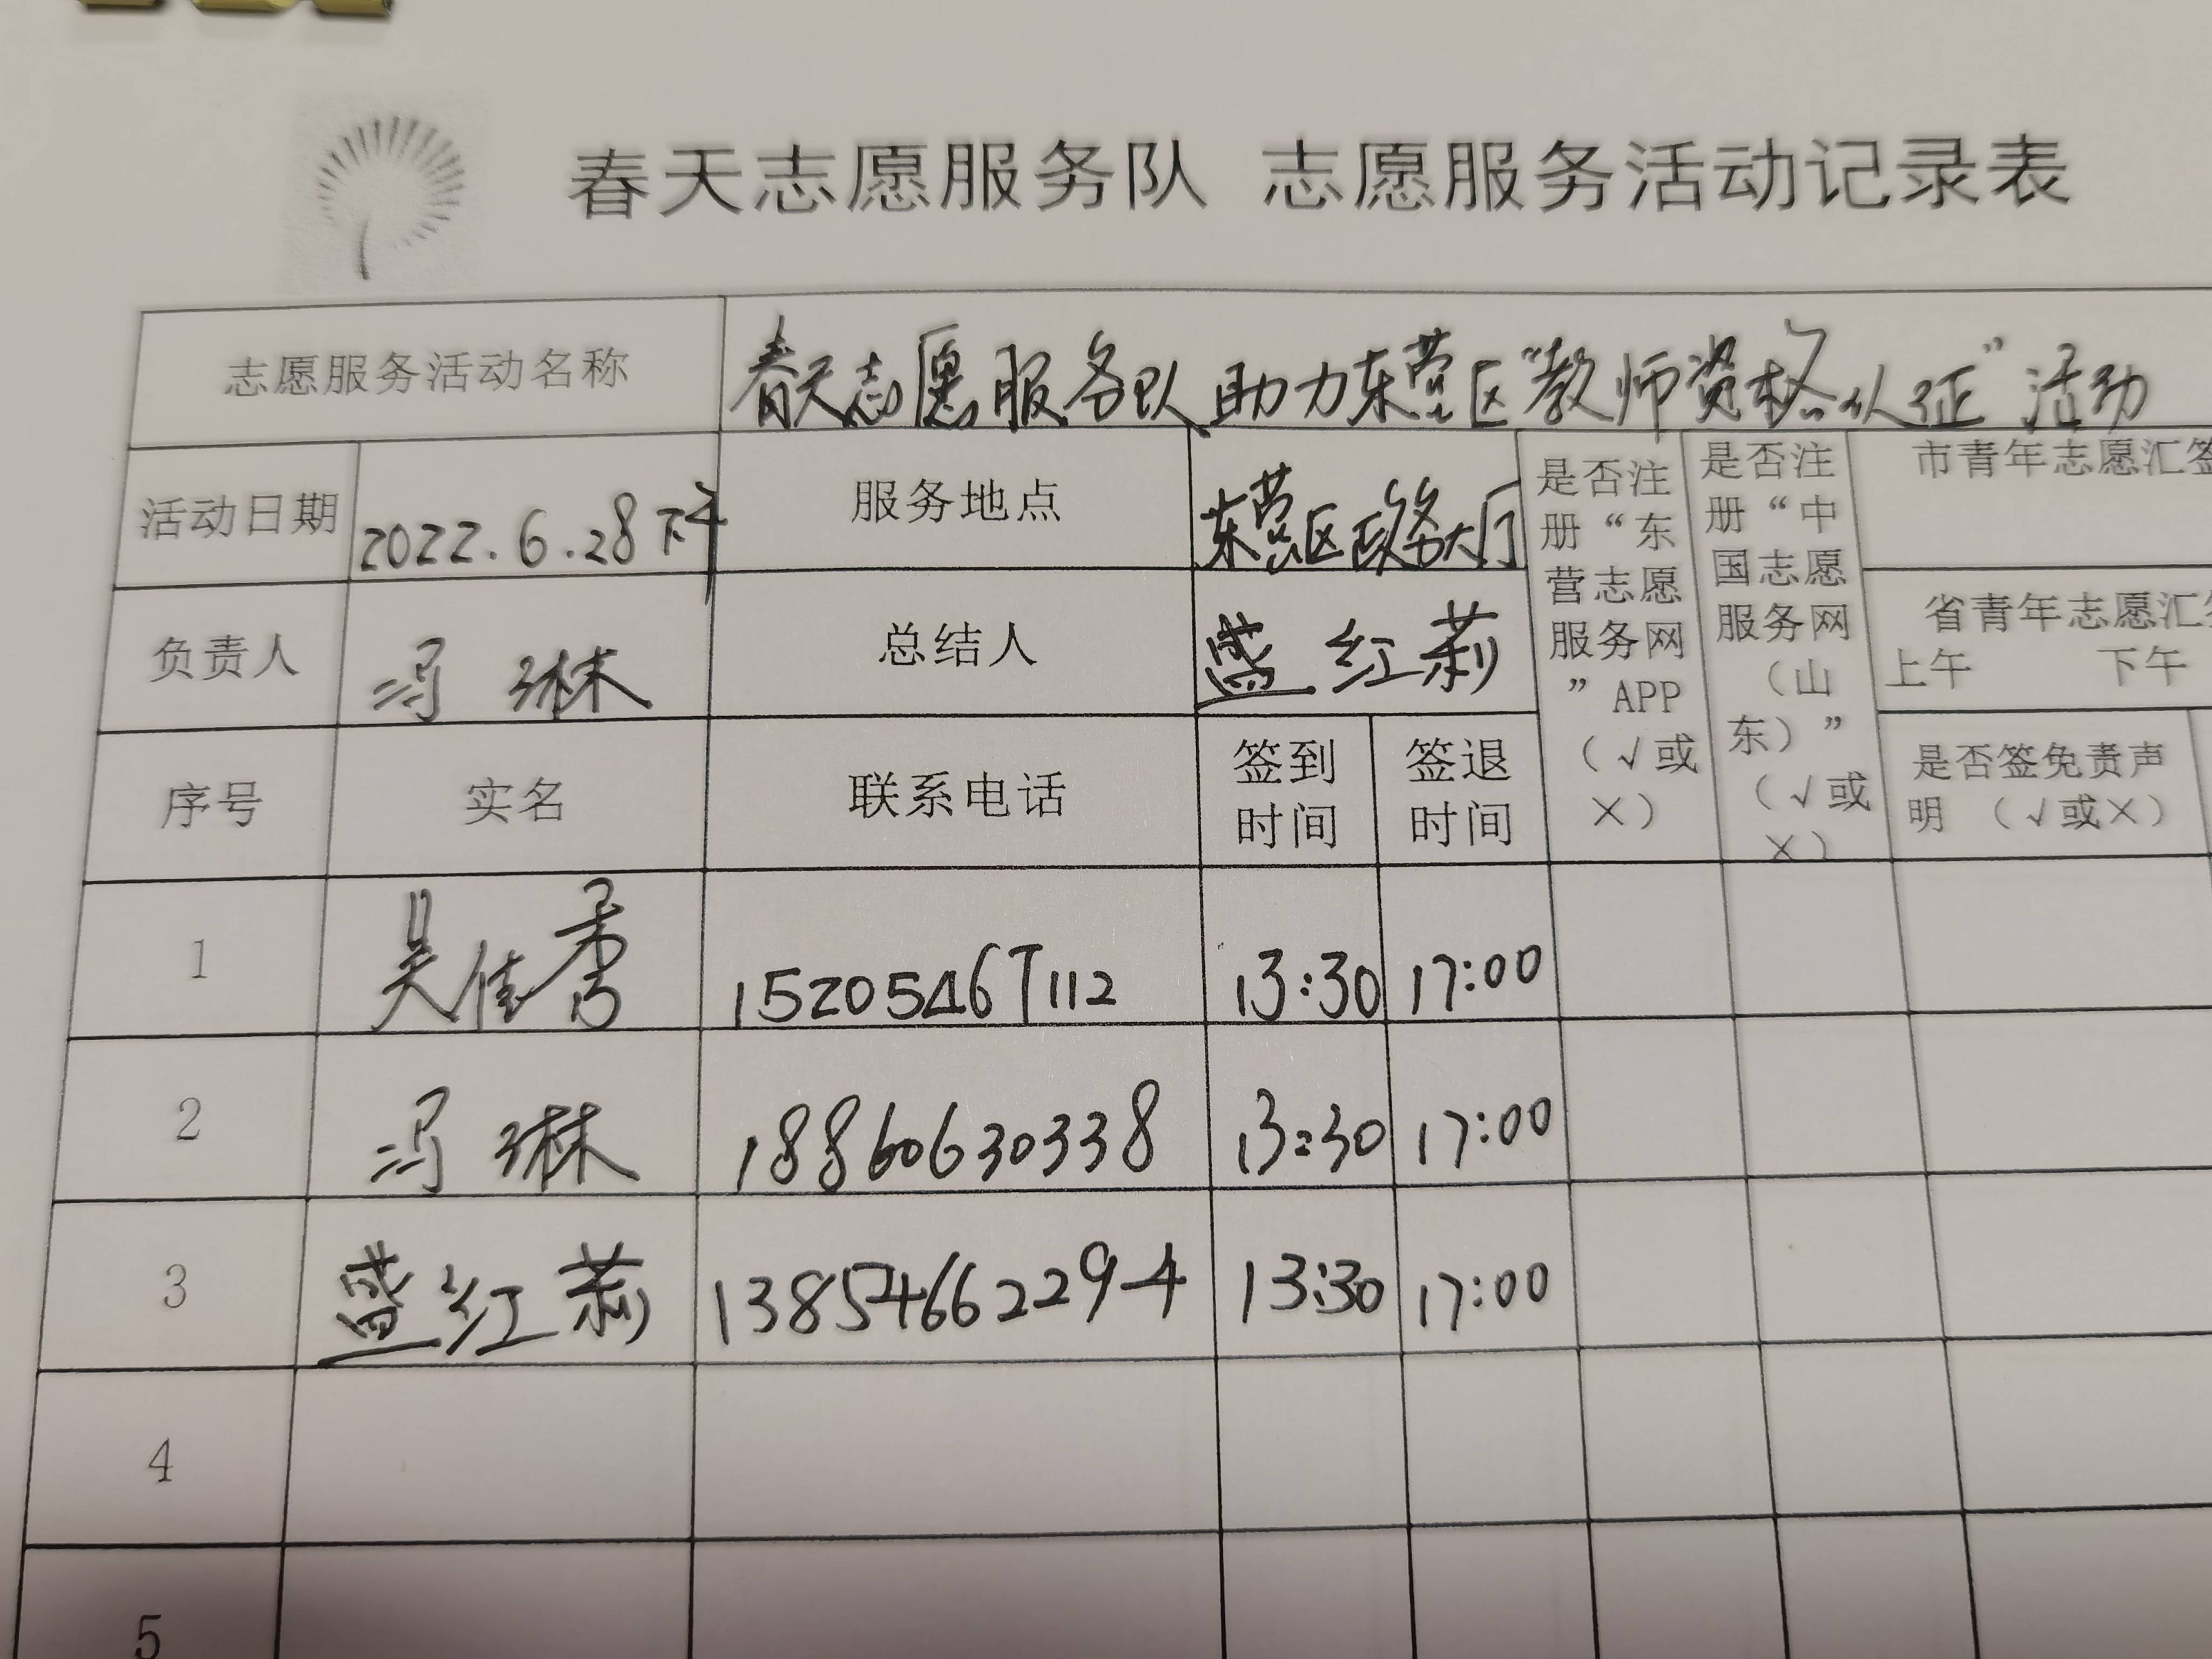 春天志愿服务队 志愿服务活动记录表
志愿服务活动名称 春天志愿服务队助力东营区“教师资格认证”活动
活动日期 2022.6.28下午 服务地点 东营区政务大厅
负责人 冯琳 总结人 盛红莉
是否注
册“东
营志愿
服务网
”APP
（√或
×）
是否注
册“中
国志愿
服务网
（山
东）”
（√或
×）
市青年志愿汇签
省青年志愿汇
上午 下午
是否签免责声
明 （√或×）
序号 实名 联系电话 签到时间 签退时间
1 吴佳秀 15205467112 13:30 17:00
2 冯琳 18860630338 13:30 17:00
3 盛红莉 13854662294 13:30 17:00
4
5